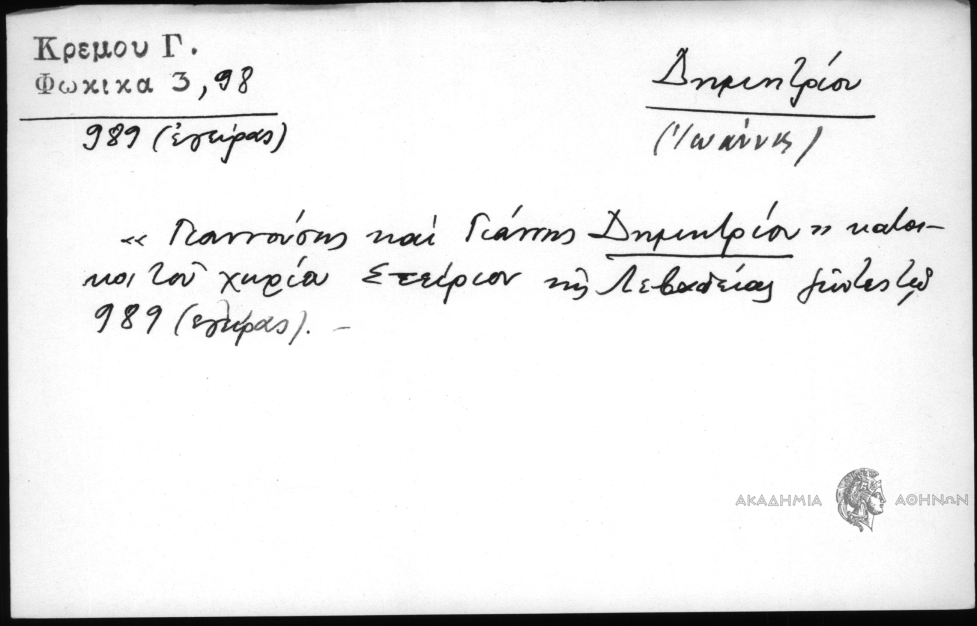 Κρεμου Γ.
Φωκικα 3, 98
989 (ἐγείρας)
Δημητρίου
(Ἰωάννης)
« Γιαννούσης καὶ Γιάννης Δημητρίου » κάτοι-
κοι τοῦ χωρίου Στείριον τῆς Λεβαδείας ζῶντες τῷ
989 (ἐγείρας). –
ΑΚΑΔΗΜΙΑ ΑΘΗΝΩΝ